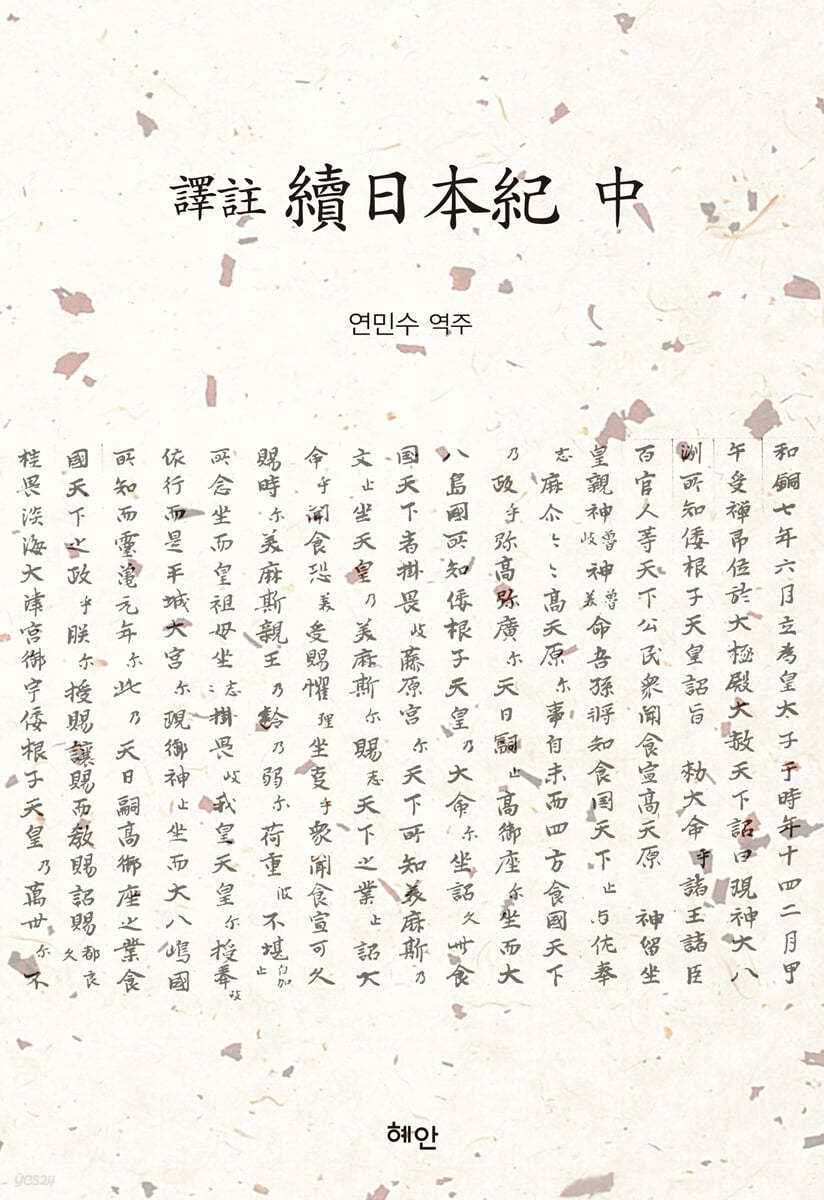 譯註 續日本紀 中
연민수 역주
和銅七年六月立為皇太子于時年十四二月甲
午受禪即位於大極殿大赦天下詔曰現神大八
洲所知倭根子天皇詔旨 勅大命乎諸王諸臣
百官人等天下公民衆聞食宣高天原 神留坐
皇親神魯岐神魯美命吾孫将知食国天下止与佐奉
志麻尓々々高天原尓事自未而四方食國天下
乃政乎弥高弥廣尓天日嗣止高御座尓坐而大
八島國所知倭根子天皇乃大命尓坐詔久此食
国天下者掛畏岐藤原宮尓天下所知美麻斯乃
文止坐天皇乃美麻斯尓賜志天下之業止詔大
命乎聞食恐美受賜懼理坐事乎衆聞食宣可久
賜時尓美麻斯親王乃齢乃弱尓荷重波不堪自加止
所念坐而皇祖母坐志掛畏岐我皇天皇尓授奉岐
依行而是平城大宮尓現御神止坐而大八嶋國
所知而靈亀元年尓此乃天日嗣高御座之業食
國天下之政乎朕尓授賜讓賜而教賜詔賜都良久
桂畏淡海大津宮御宇倭根子天皇乃萬世尓不
혜안
yes24